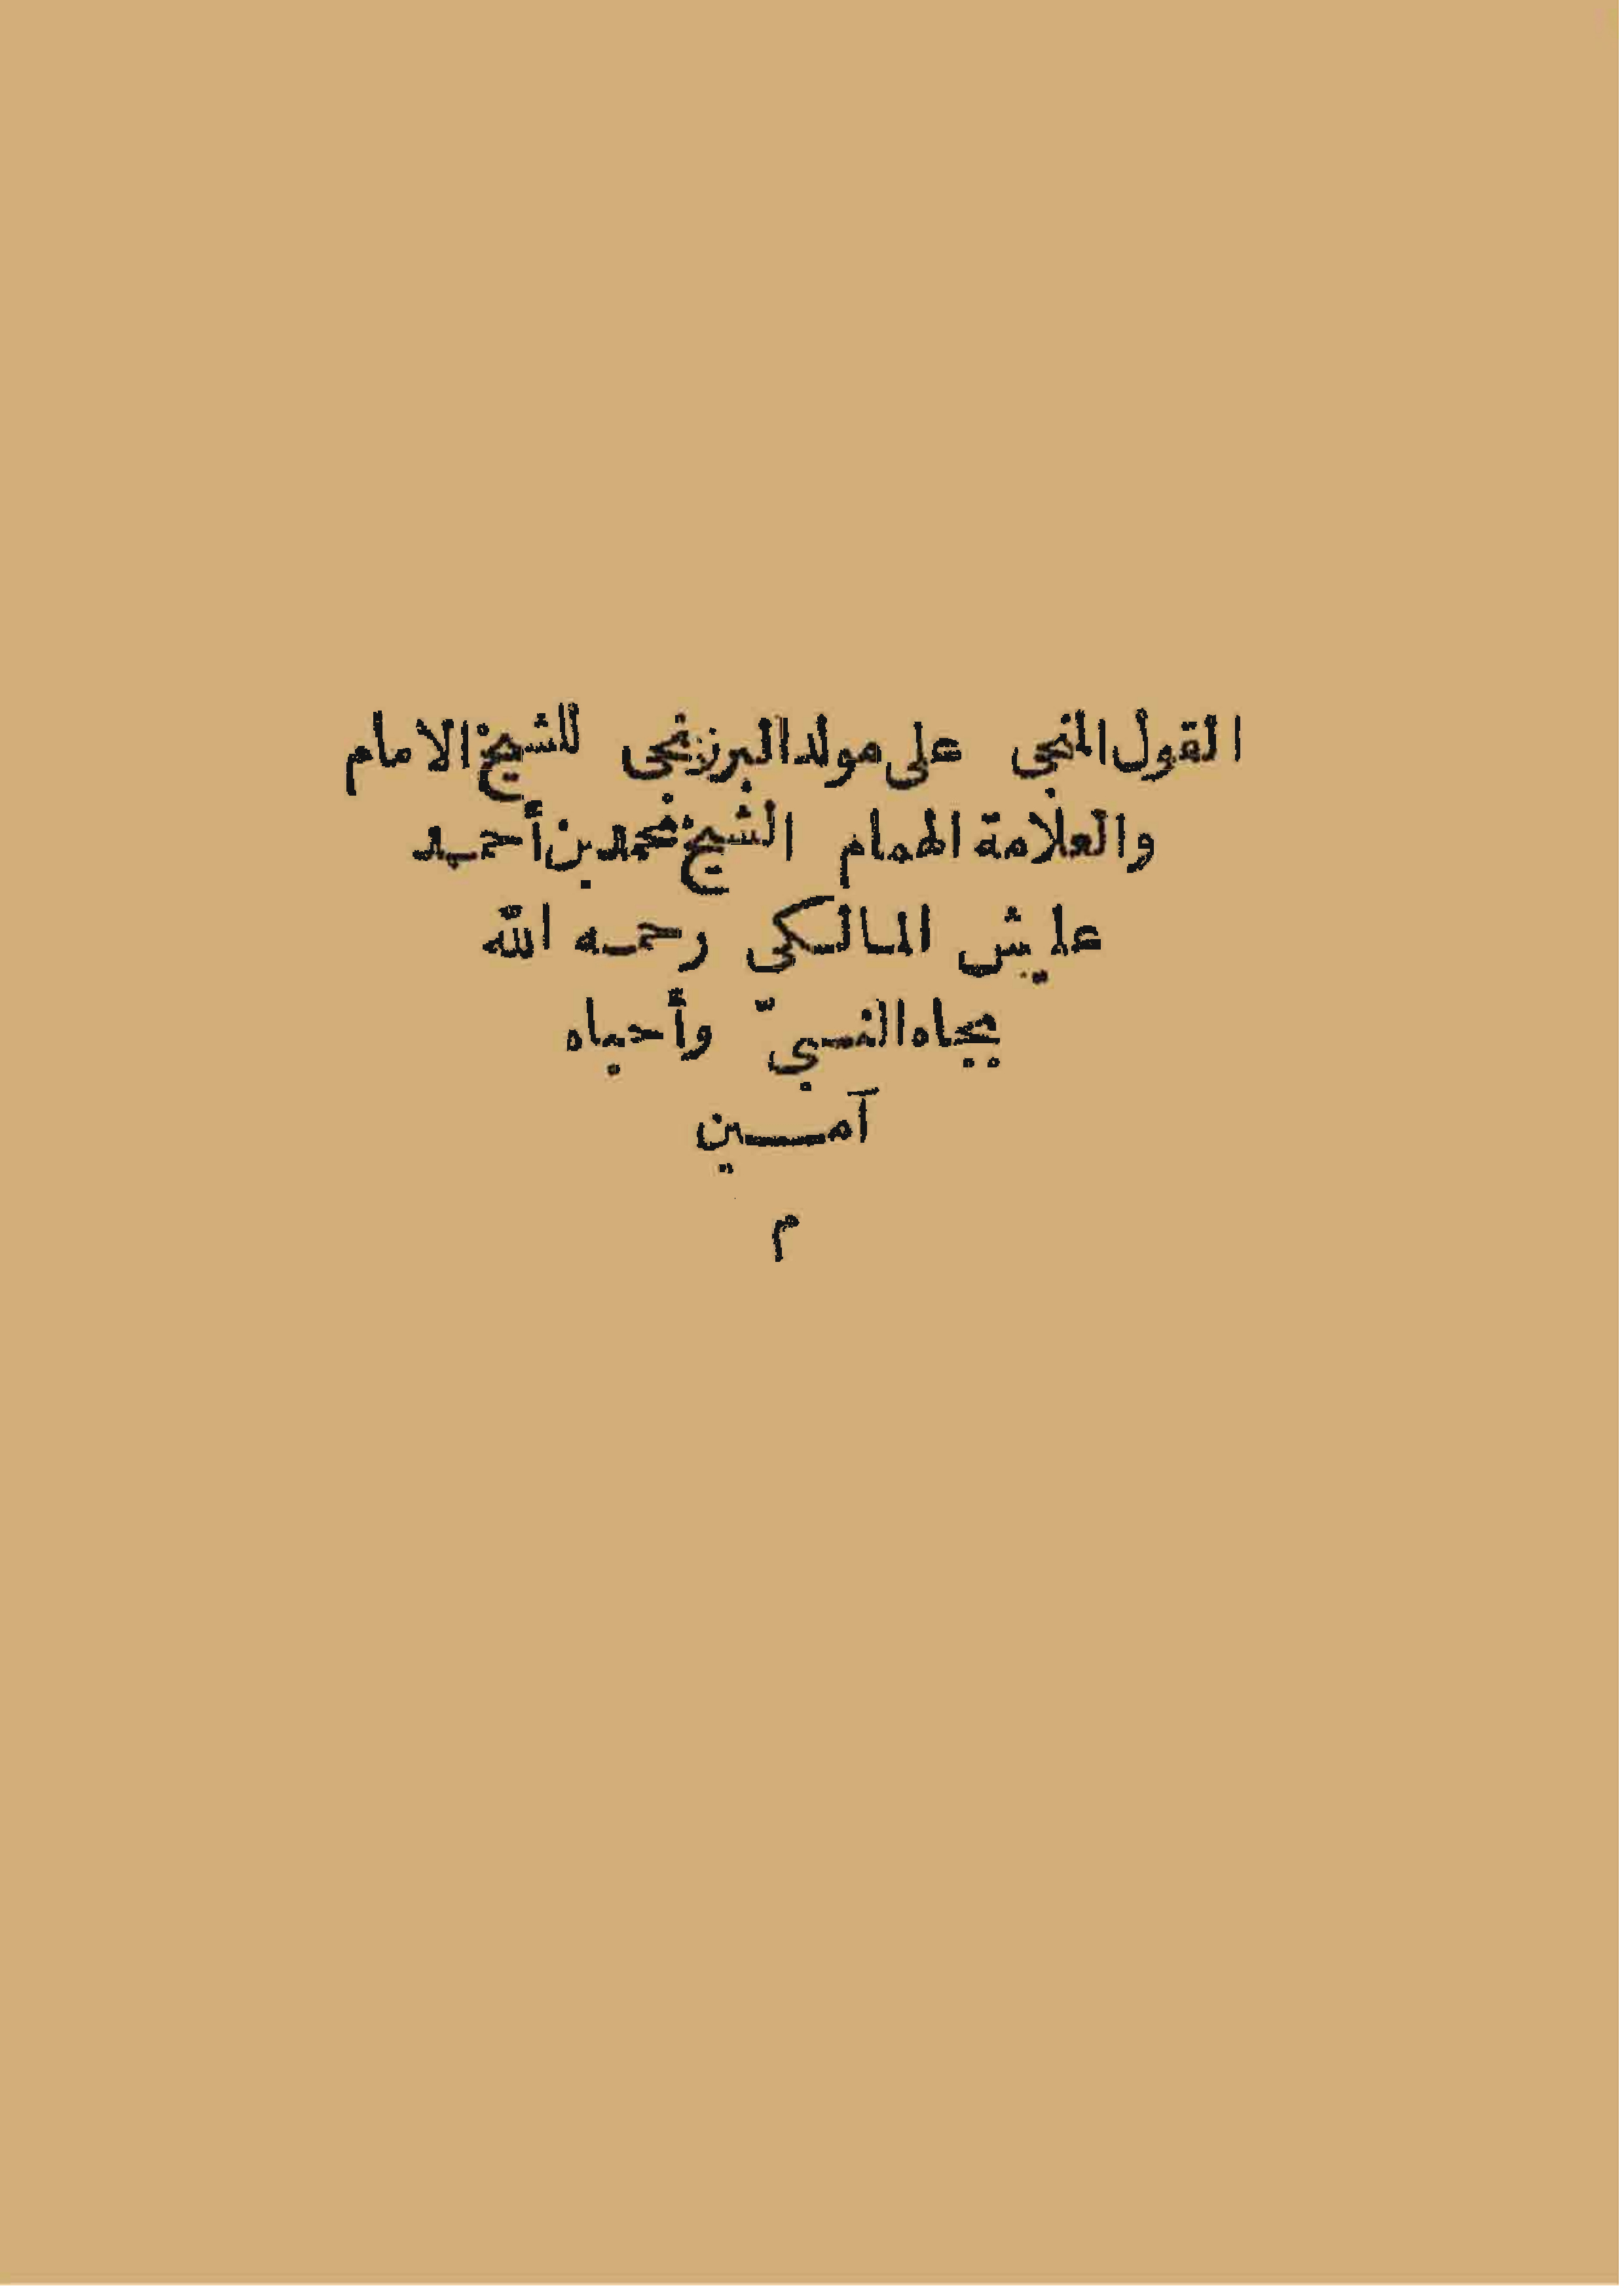 القول المنجى على مولد البرزنجى للشيخ الامام
والعلامة الهمام الشيخ محمد بن أحمد
عليش المالكى رحمه الله
بجاه النبىّ وأحبابه
آمين
م